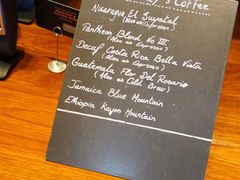 Coffee
Nicaragua El Suyatal
(Also as Espresso)
Pantheon Blend No III
(Also as Espresso)
Decaf Costa Rica Bella Vista
(Also as Espresso)
Guatemala Flor Del Rosario
(Also as Cold Brew)
Jamaica Blue Mountain
Ethiopia Kayon Mountain